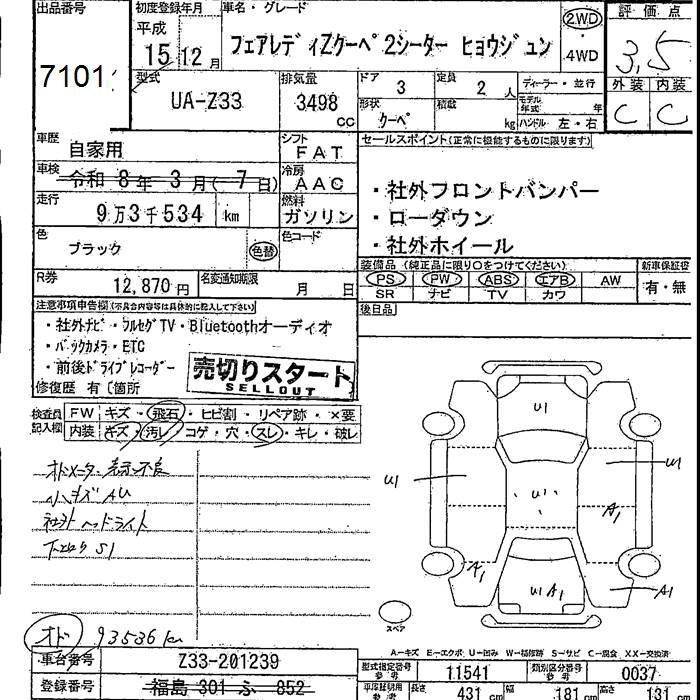 出品番号
7101
初度登録年月
平成
15年12月
車名・グレード
フェアレディZクーペ 2シーター ヒョウジュン
2.WD
4WD
評価点
3,5
外装 内装
C C
型式
UA-Z33
排気量
3498
CC
ドア
3
定員
2人
形状
クーペ
積載
kg
ディーラー・並行
モデル年式 年
ハンドル 左・右
車歴
自家用
シフト
FAT
車検
令和 8年 3月( 7日)
冷房
AAC
走行
9万3千534 km
燃料
ガソリン
色
ブラック
色替
色コード
R券
12,870円
名変通知期限
月 日
セールスポイント(正常に機能するものに限ります)
・社外フロントバンパー
・ローダウン
・社外ホイール
装備品 (純正品に限り○をつけてください)
新車保証書
PS PW ABS エアB AW
SR ナビ TV カワ
有・無
後日品
注意事項申告欄(不具合内容等は具体的に記入して下さい)
・社外ナビ・フルセグTV・Bluetoothオーディオ
・バックカメラ・ETC
・前後ドライブレコーダー
売切りスタート
SELLOUT
修復歴 有〔箇所
検査員記入欄
FW キズ・飛石・ヒビ割・リペア跡・×要
内装 キズ・汚レ・コゲ・穴・スレ・キレ・破レ
オドメーター 表示不良
小キズ AU
社外 ヘッドライト
下回り S1
オド 93536 km
U1
U1
U1
U1
A1
A1
U1 A1
A1
スペア
A-キズ E-エクボ U-凹み W-補修跡 S-サビ C-腐食 XX-交換済
車台番号
Z33-201239
登録番号
福島 301 ふ 852
型式指定番号
参考
11541
類別区分番号
参考
0037
車庫証明用
参考
長さ
431 cm
幅
181 cm
高さ
131 cm